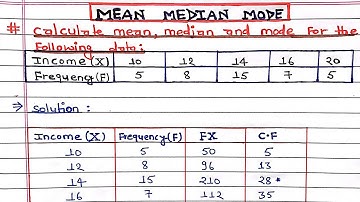 MEAN MEDIAN MODE
# Calculate mean, median and mode for the
following data:
Income (X) 10 12 14 16 20
Frequency (F) 5 8 15 7 5
⇒ Solution :
Income (X) Frequency (F) FX C.F
10 5 50 5
12 8 96 13
14 15 210 28 *
16 7 112 35